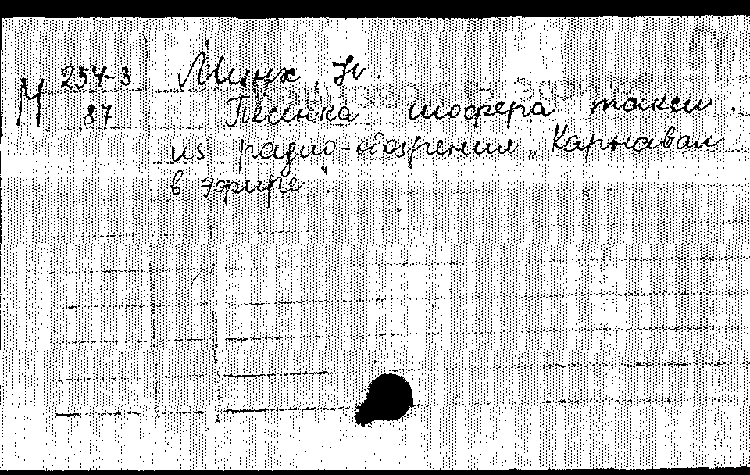 М 254-3 Минх Н.
87 Песенка шофера такси.
из радио-обозрения „Карнавал
в эфире".